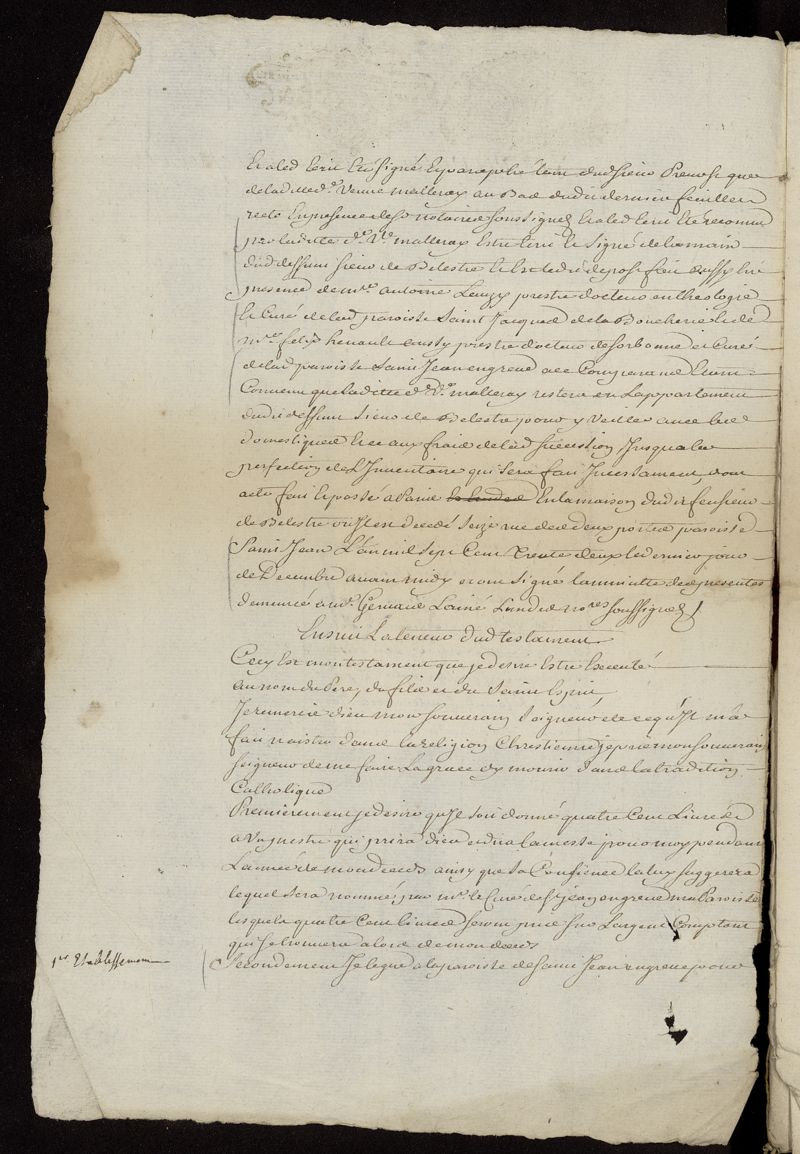 Et aled Ecrit Eté signé Et paraphé tant dud sieur Prevost que
de lad. d.e Veuve malleray au Bas dudit dernier feuillet
recto En presence des d. notaires soussignez Et aled Ecrit Eté reconnu
par ladite d.e V.e malleray Estre Ecrit et Signé de la main
dud deffunt Sieur de Belestre Et led depost fait aussy En
presence de m.re antoine prestre docteur en theologie
Et Curé de lad paroisse Saint Jacques de la Boucherie Et de
m.re felix henault aussy prestre docteur de Sorbonne et Curé
de lad paroisse Saint Jean en greve a ce Comparans Etant
Convenu que ladite d.e V.e malleray restera en Lappartement
dudit deffunt Sieur de Belestre pour y Veiller avec les
domestiques Et ce aux frais de lad succession Jusqu'a la
perfection de L'Inventaire qui sera fait Incessament, dont
acte fait Et passé a Paris En la maison dudit feu sieur
de Belestre ou Il est decedé Seize rue des deux portes paroisse
Saint Jean L'an mil sept Cent Trente deux le dernier jour
de Decembre avant midy et ont signé la minutte des presentes
demeurée a m.e Lainé L'un des no.res soussignez
Ensuit La teneur dud testament
Cecy Est mon testament que je desire Estre Executé
au nom du Pere, du fils et du Saint Esprit
Je remercie dieu mon Souverain Seigneur de ce qu'Il m'a
fait naistre dans la religion Chrestienne je prie mon Souverain
Seigneur de me faire La grace d'y mourir dans la tradition
Catholique
Premierement je desire qu'Il soit donné quatre Cent Livres
a Un prestre qui prira dieu et dira la messe pour moy pendant
L'année de mon deceds ainsy que sa Consience la luy suggerera
lequel sera nommé par m.r le Curé de S.t Jean en greve ma Paroisse
lesquels quatre Cent livres seront pris sur Largent Comptant
qui se trouvera alors de mon deceds
1.er Etablissement
Secondement Je legue a la paroisse de Saint Jean en greve pour